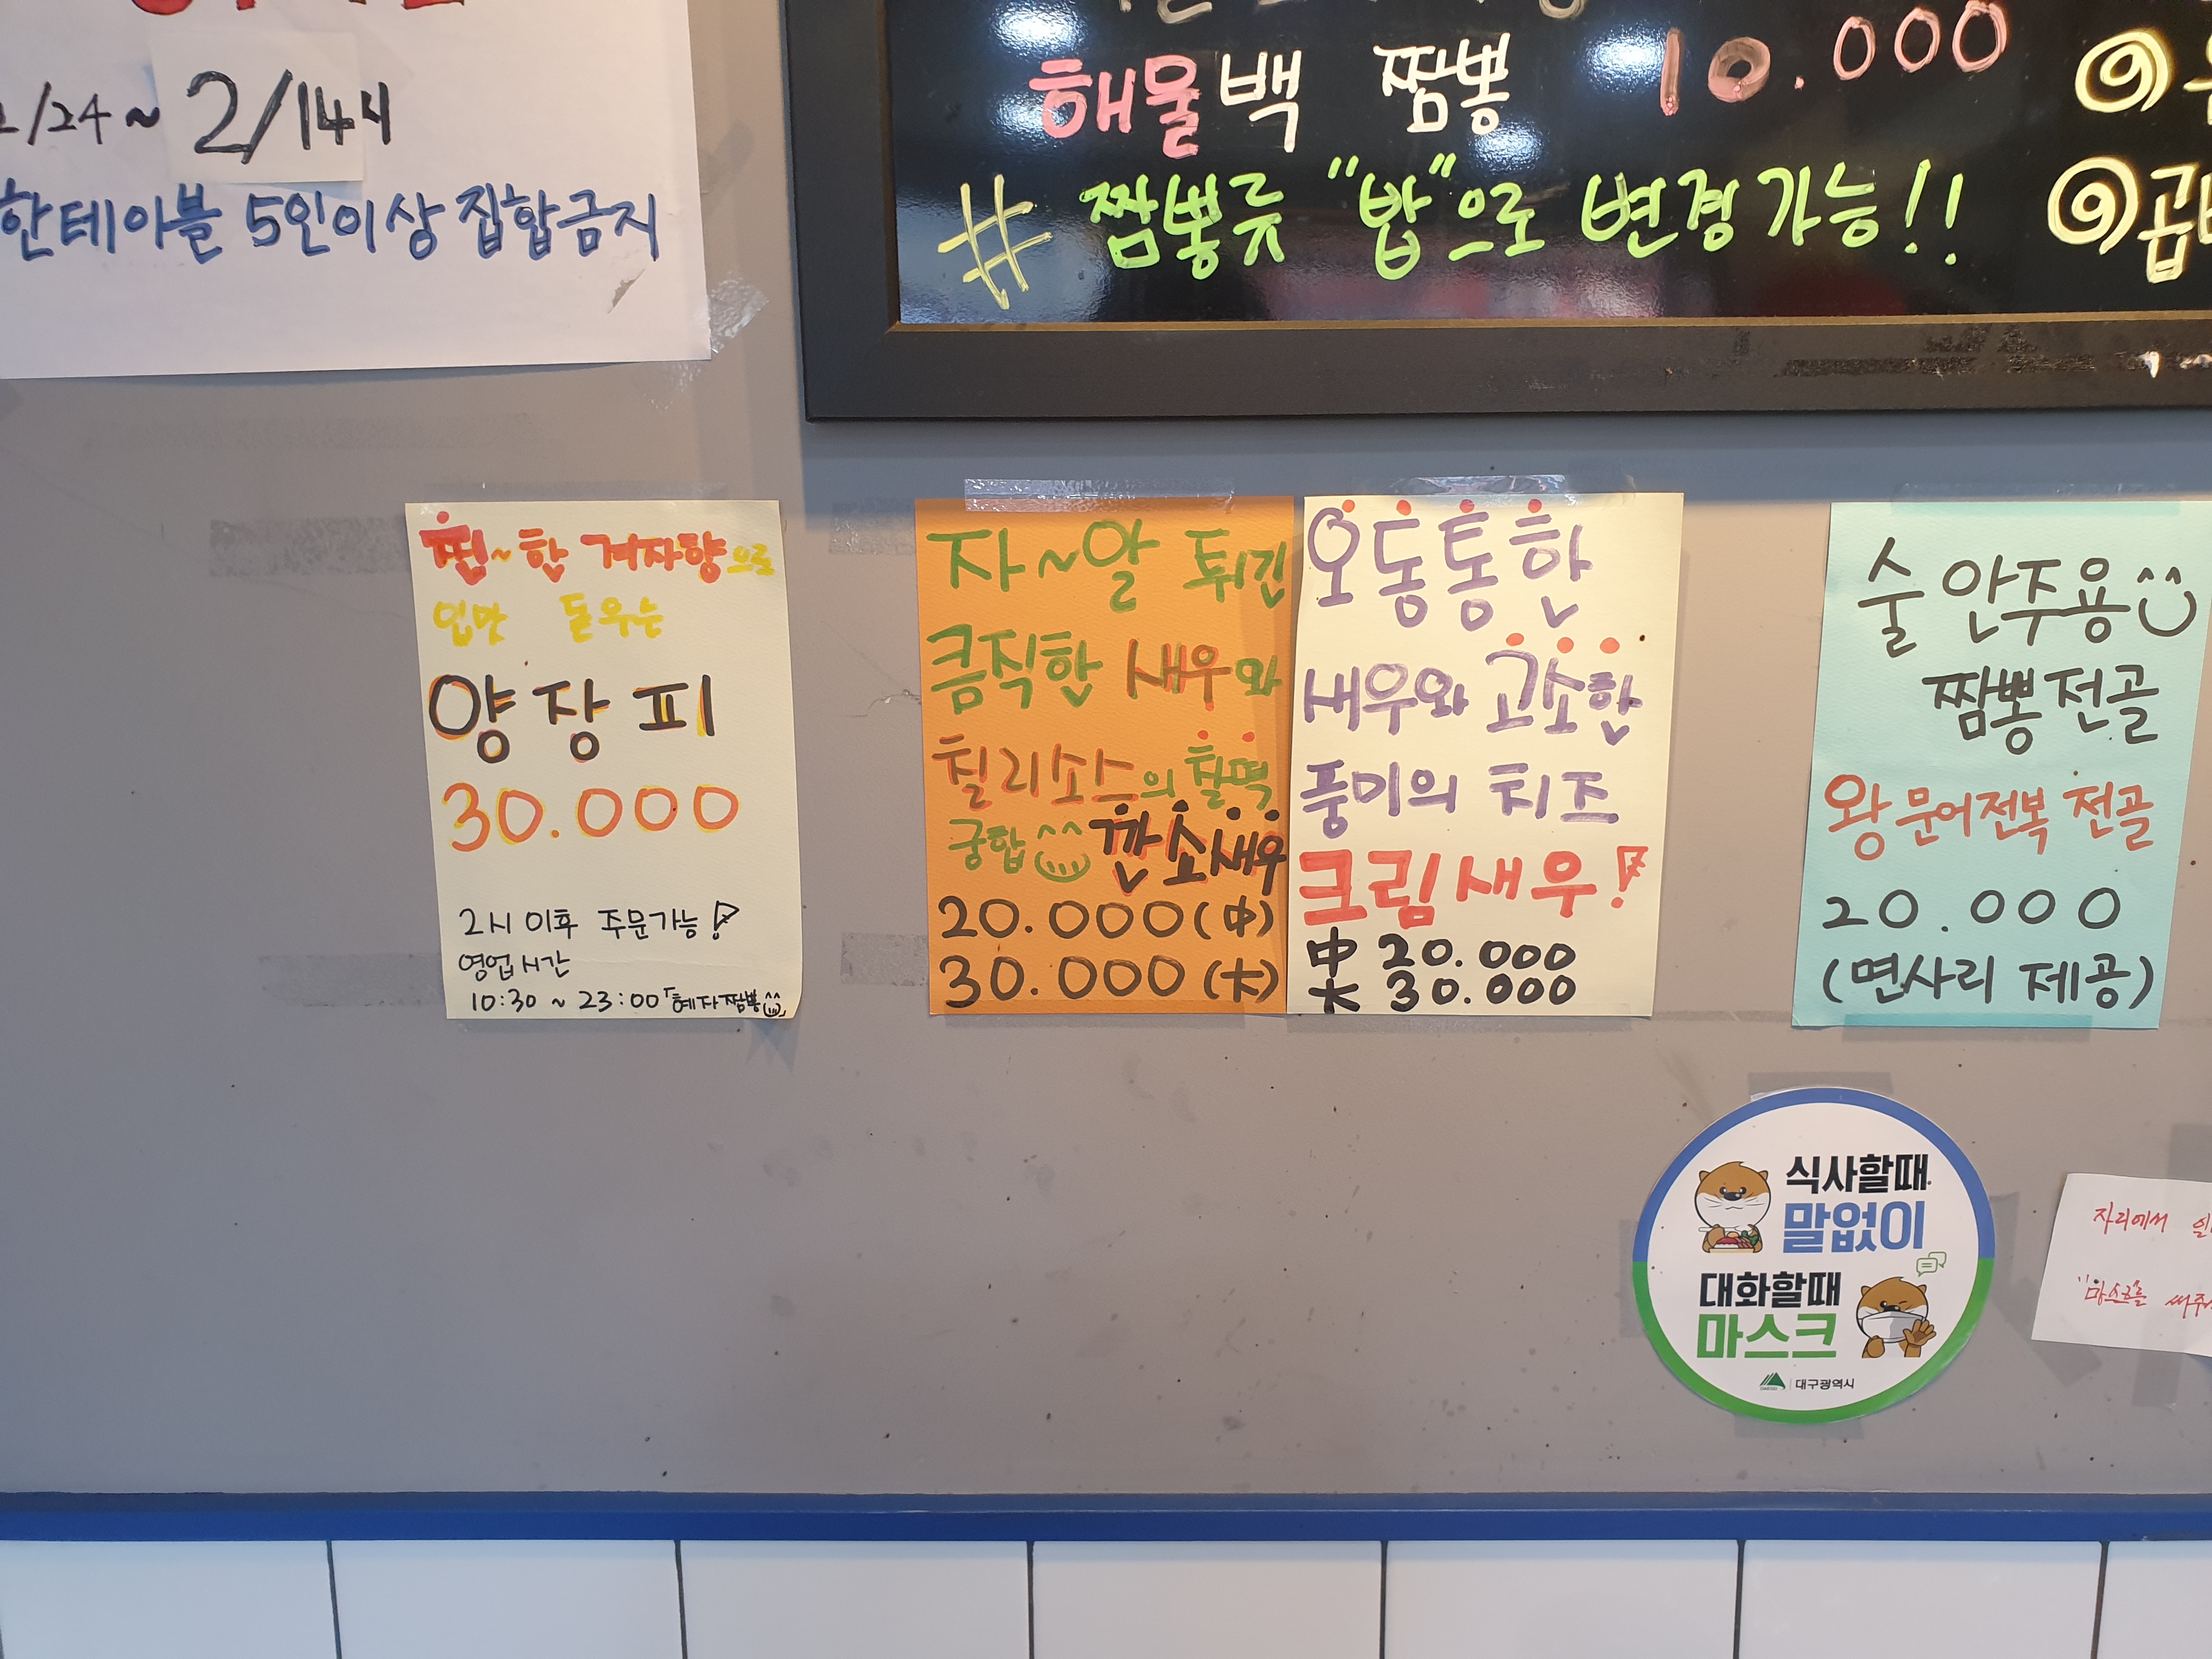 2/14까지
한테이블 5인이상 집합금지
해물백 짬뽕 10.000
# 짬뽕류 "밥"으로 변경가능!!
찐~한 겨자향으로
입맛 돋우는
양장피
30.000
2시 이후 주문가능!
영업시간
10:30 ~ 23:00 「혜자짬뽕
자~알 튀긴
큼직한 새우와
칠리소스의 찰떡
궁합 깐소새우
20.000(中)
30.000(大)
오동통한
새우와 고소한
풍미의 치즈
크림새우!
中 20.000
大 30.000
술안주용
짬뽕전골
왕문어전복 전골
20.000
(면사리 제공)
식사할때
말없이
대화할때
마스크
대구광역시
자리에서
"마스크를